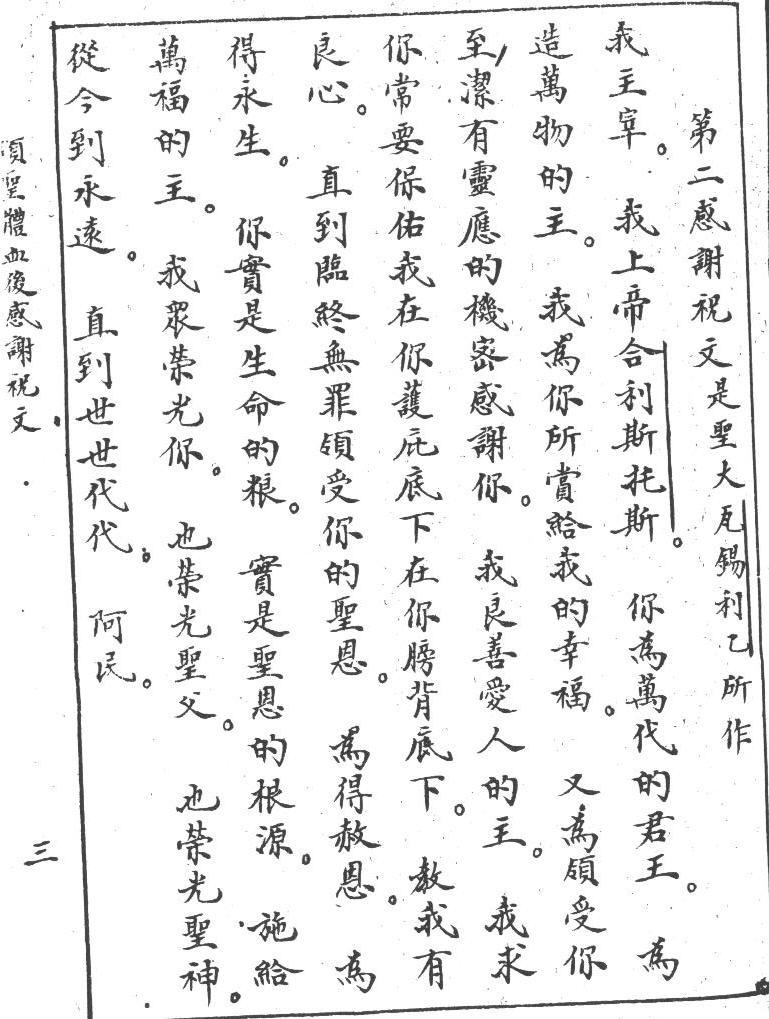 第二感謝祝文是聖大瓦錫利乙所作
我主宰。我上帝合利斯托斯。你為萬代的君王。為
造萬物的主。我為你所賞給我的幸福。又為領受你
至潔有靈應的機密感謝你。我良善愛人的主。我求
你常要保佑我在你護庇底下在你膀背底下。教我有
良心。直到臨終無罪領受你的聖恩。為得赦恩。為
得永生。你實是生命的粮。實是聖恩的根源。施給
萬福的主。我眾榮光你。也榮光聖父。也榮光聖神。
從今到永遠。直到世世代代。阿民。
領聖體血後感謝祝文
三